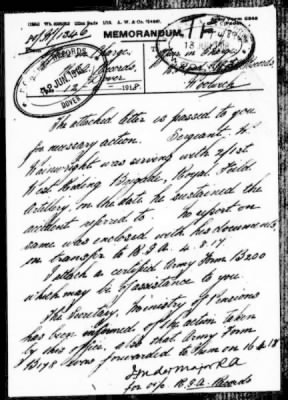 MEMORANDUM
Army Form C348
From
To
Records
Dover
Records
Woolwich
12 1918
The attached letter is passed to you
for necessary action. Sergeant W.
Wainwright was serving with 2/1st
West Riding Brigade, Royal Field
Artillery, on the date he sustained the
accident referred to. No report on
same was enclosed with his documents,
on transfer to R.G.A. 4.8.17.
I attach a certified Army Form B200
which may be of assistance to you.
The Secretary, Ministry of Pensions
has been informed of the action taken
by this office, also that Army Form
B178 was forwarded to them on 16.4.18
Major R.A
for o/c R.G.A. Records
RECORDS
DOVER